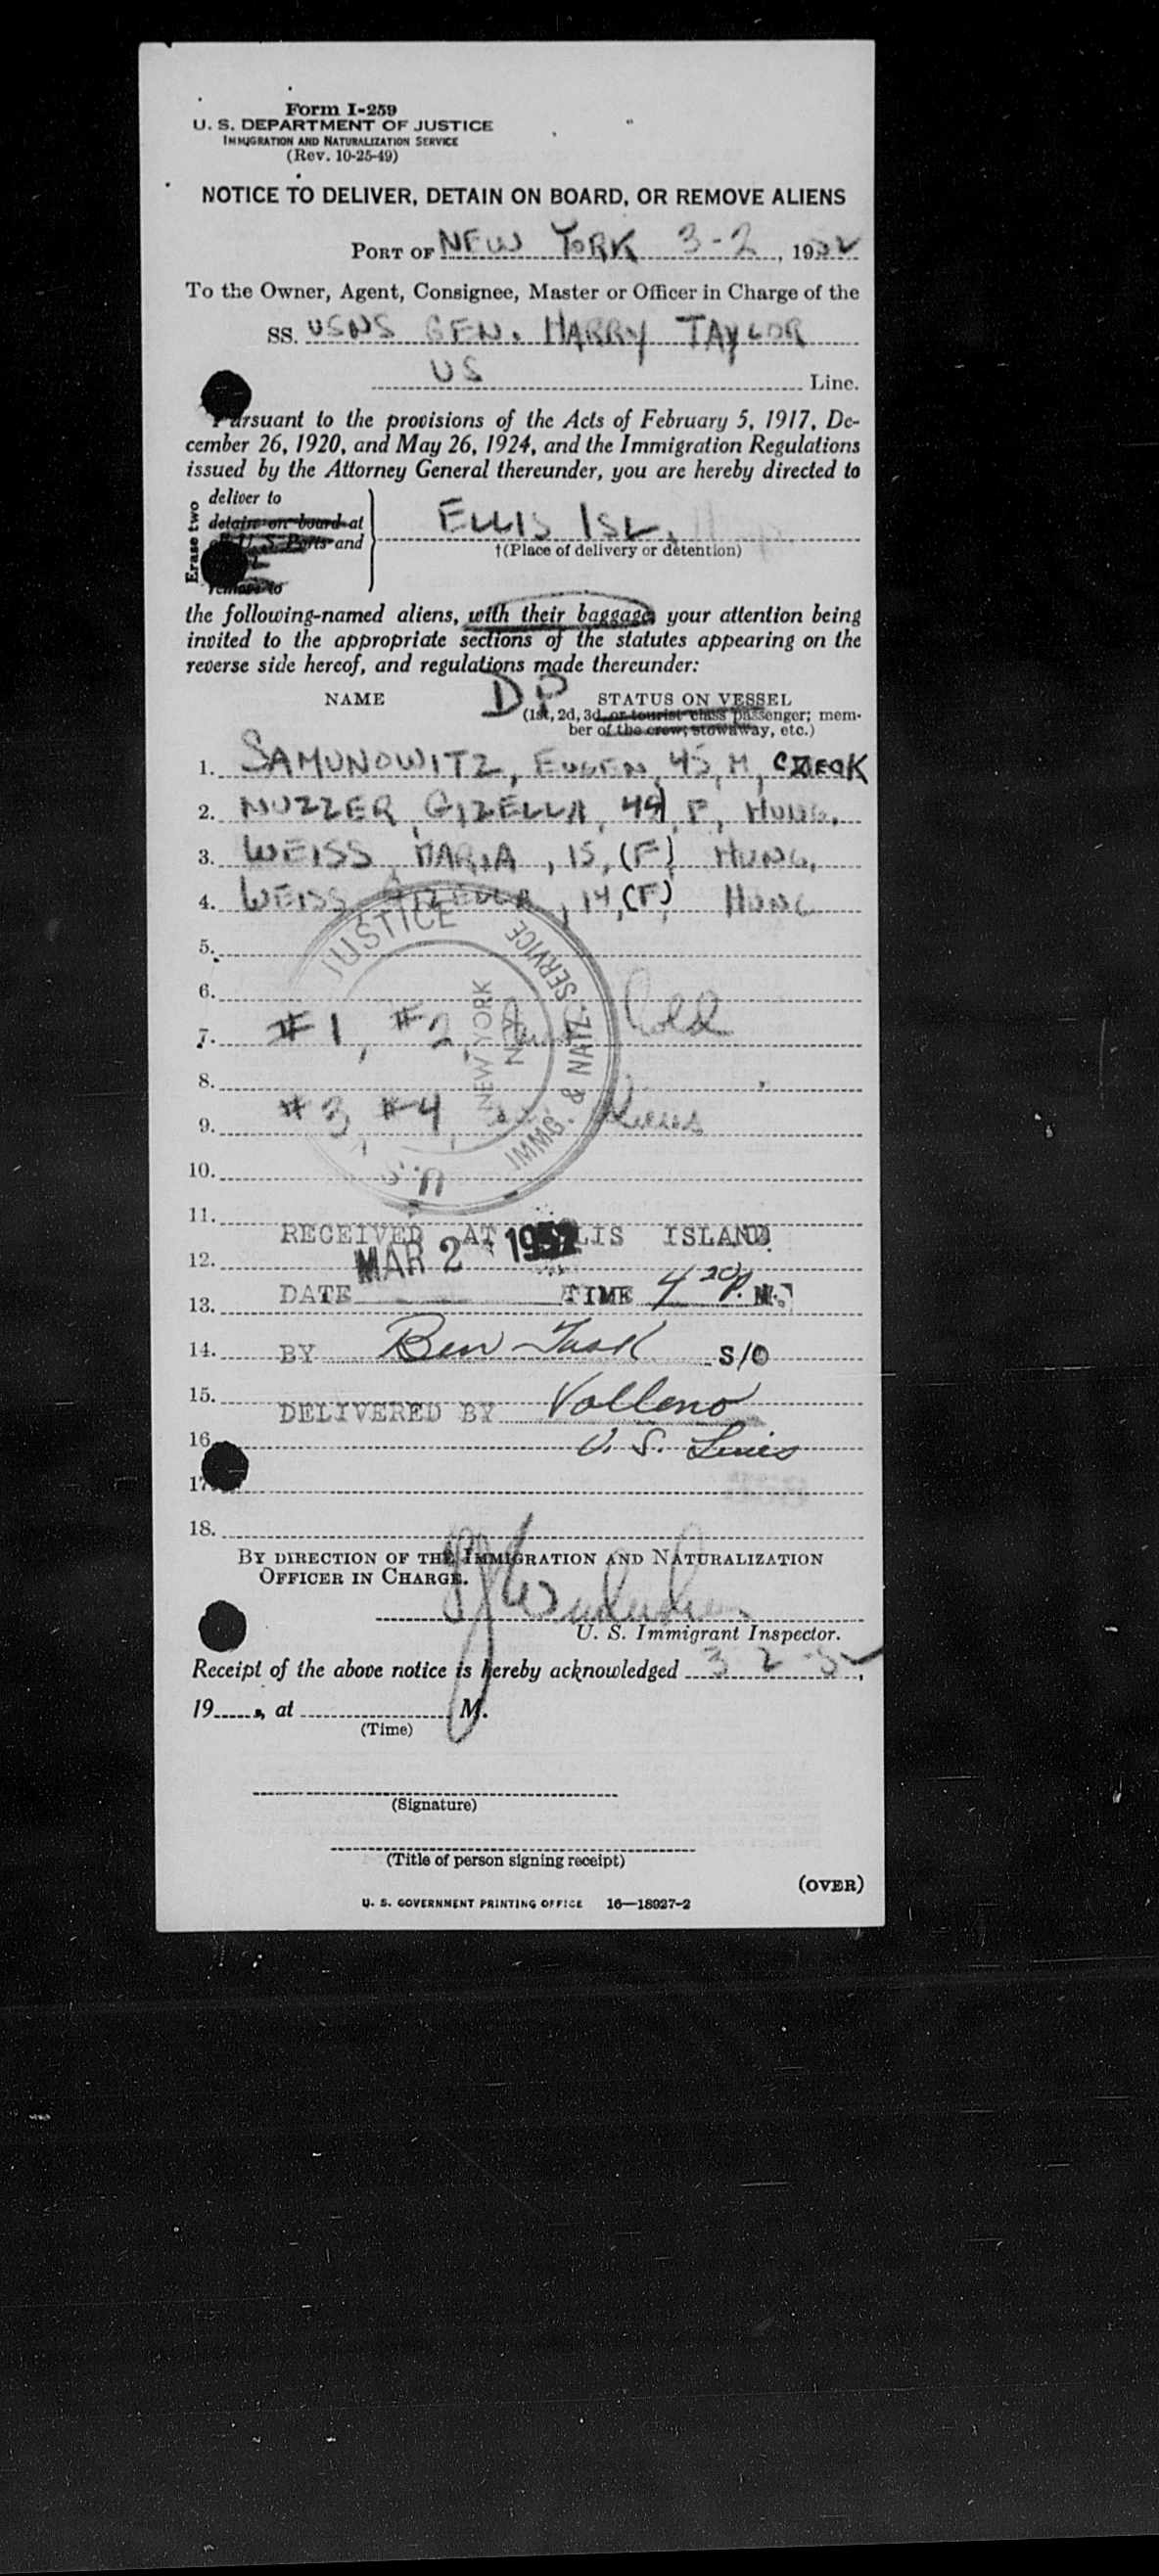 Form I-259
U. S. DEPARTMENT OF JUSTICE
IMMIGRATION AND NATURALIZATION SERVICE
(Rev. 10-25-49)
NOTICE TO DELIVER, DETAIN ON BOARD, OR REMOVE ALIENS
PORT OF NEW YORK 3-2, 1952
To the Owner, Agent, Consignee, Master or Officer in Charge of the
SS. USNS GEN. HARRY TAYLOR
US Line.
Pursuant to the provisions of the Acts of February 5, 1917, De-
cember 26, 1920, and May 26, 1924, and the Immigration Regulations
issued by the Attorney General thereunder, you are hereby directed to
Erase two
deliver to
detain on board at
U. S. Ports and
remove to
ELLIS ISL,
†(Place of delivery or detention)
the following-named aliens, with their baggage, your attention being
invited to the appropriate sections of the statutes appearing on the
reverse side hereof, and regulations made thereunder:
NAME DP STATUS ON VESSEL
(1st, 2d, 3d, or tourist class passenger; mem-
ber of the crew, stowaway, etc.)
1. SAMUNOWITZ, EUGEN, 45, M, CZECK
2. NUZZER, GIZELLA, 44, F, HUNG.
3. WEISS MARIA, 15, (F) HUNG.
4. WEISS GIZELLA, 14, (F) HUNG
5.
6.
7. #1, #2,
8.
9. #3, #4,
10.
JUSTICE
IMMG. & NATZ. SERVICE
NEW YORK
N.Y.
U.S.
11.
RECEIVED AT ELLIS ISLAND
12. MAR 2 1952
13. DATE TIME 4 20 P. M.
14. BY Ben Task S/O
15.
DELIVERED BY Volleno
16. U. S. Lines
17.
18.
BY DIRECTION OF THE IMMIGRATION AND NATURALIZATION
OFFICER IN CHARGE.
U. S. Immigrant Inspector.
Receipt of the above notice is hereby acknowledged 3-2-52,
19, at M.
(Time)
(Signature)
(Title of person signing receipt)
(OVER)
U. S. GOVERNMENT PRINTING OFFICE 16—18027-2